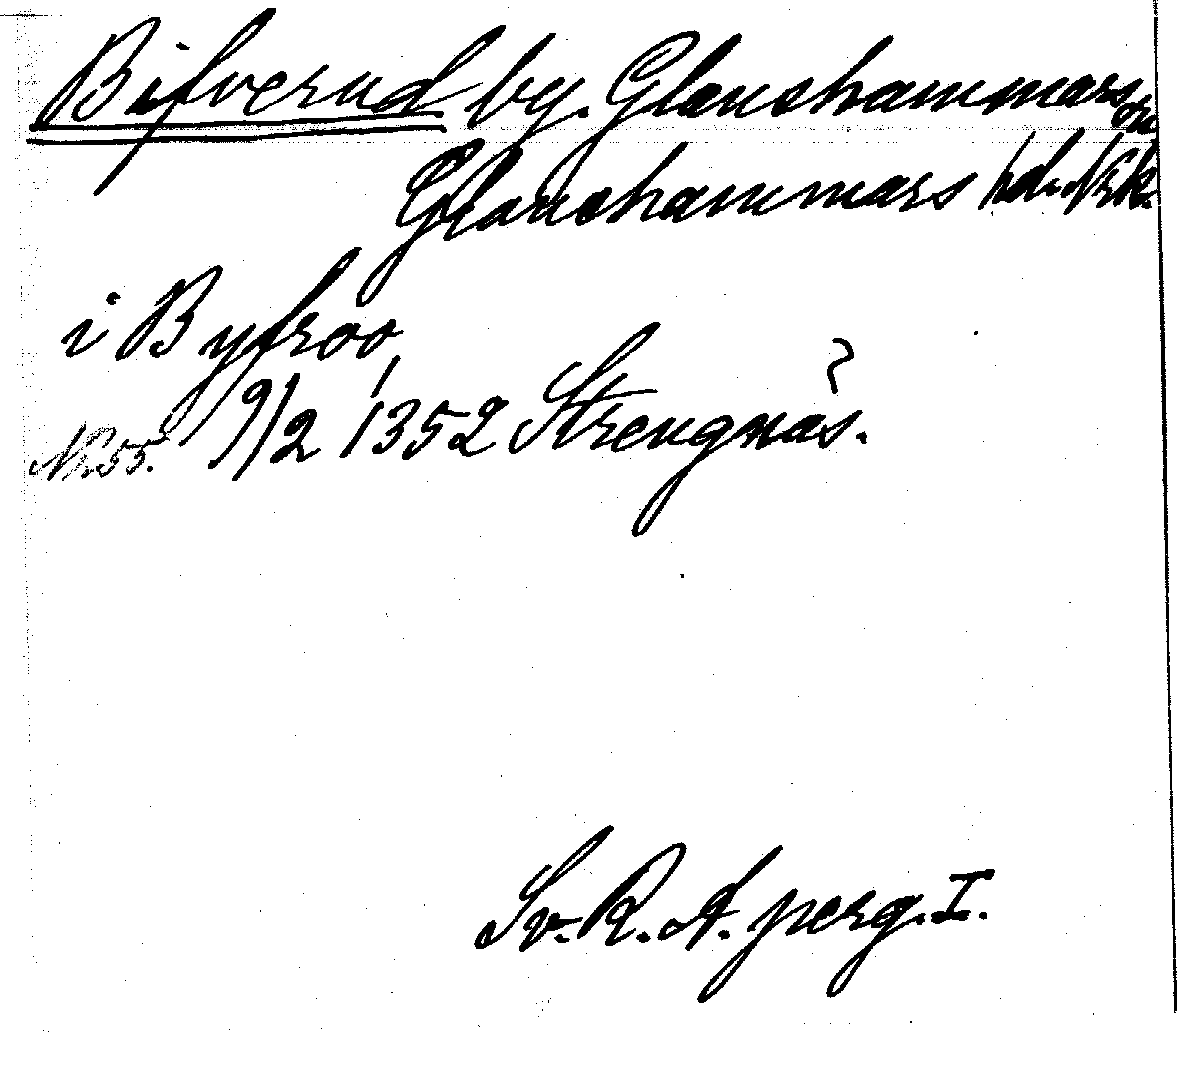 Bifverud by. Glanshammars sn.
Glanshammars hd. Nrk.
i Byfroo,
Nr 55. 9/2 1352 Strengnäs.
Sv. R. A. perg. I.